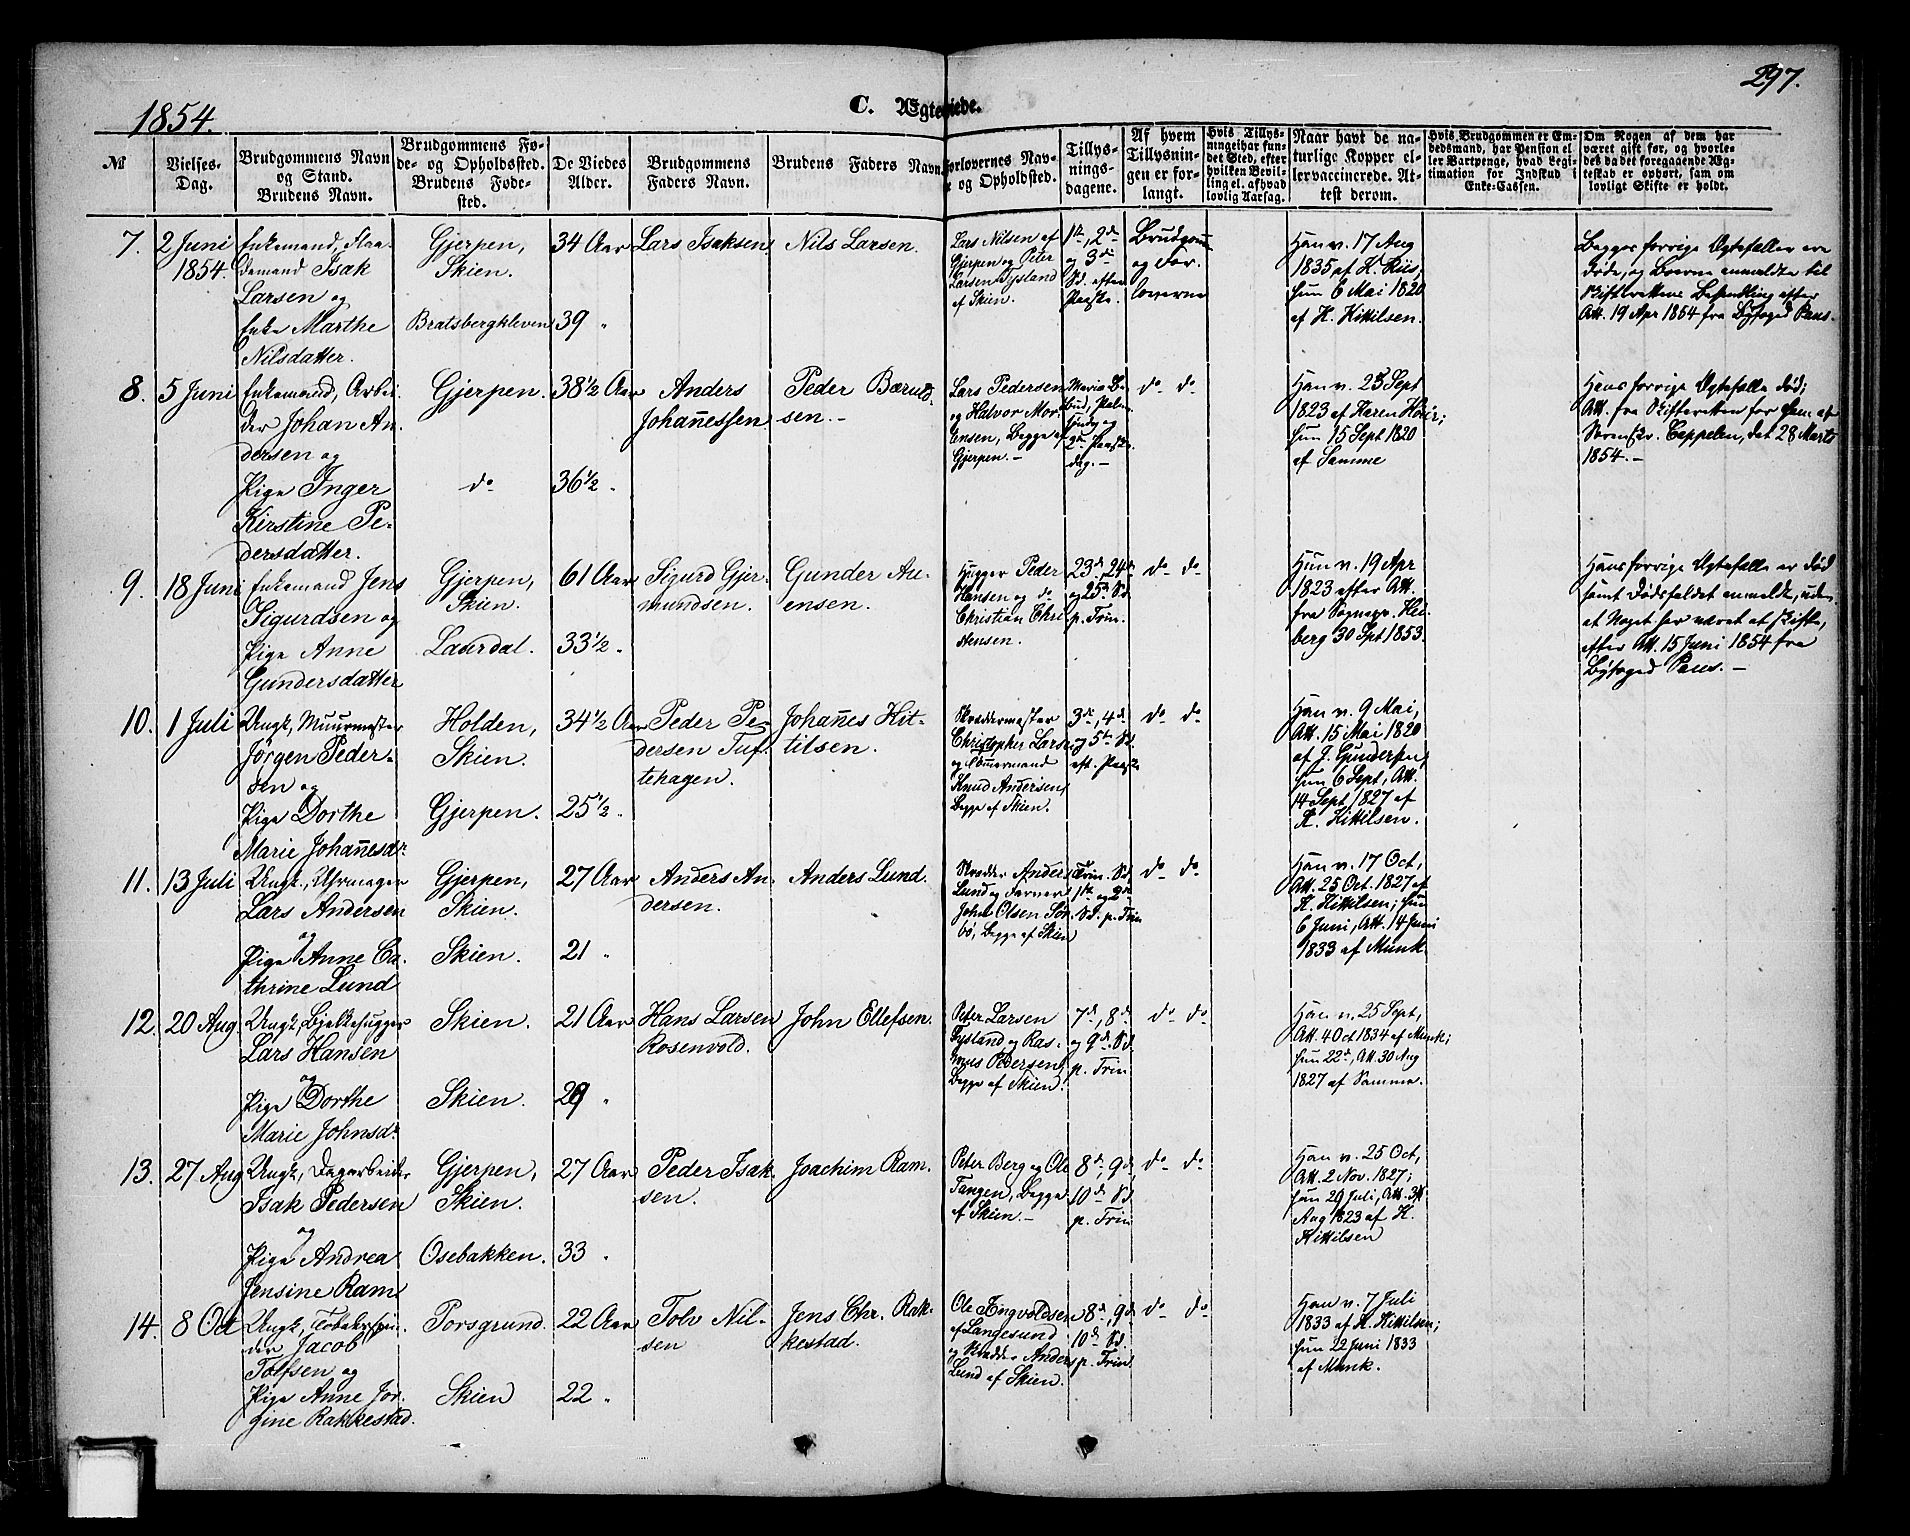 297.
1854.
C. Ægteviede.
№
Vielses-
Dag.
Brudgommens Navn
og Stand.
Brudens Navn.
Brudgommens Fø-
de- og Opholdssted.
Brudens Føde-
sted.
De Viedes
Alder.
Brudgommens
Faders Navn.
Brudens Faders Navn.
Forlovernes Nav-
ne og Opholdsted.
Tillys-
nings-
dagene.
Af hvem
Tillysnin-
gen er for-
langt.
Hvis Tillys-
ning ei har fun-
det Sted, efter
hvilken Bevil-
ling el. af hvad
lovlig Aarsag.
Naar havt de na-
turlige Kopper el-
ler vaccinerede. At-
test derom.
Hvis Brudgommen er Em-
bedsmand, har Pension el-
ler Vartpenge, hvad Legi-
timation for Indskud i
Enke-Cassen.
Om Nogen af dem har
været gift før, og hvorle-
des da det foregaaende Æg-
teskab er ophørt, sam om
lovligt Skifte er holdt.
7.
2 Juni
1854.
Enkemand,
Isak
Larsen og
Enke Marthe
Nilsdatter.
Gjerpen,
Skien.
Bratsbergkleven
34 Aar
39 "
Lars Isaksen.
Nils Larsen.
Lars Nilsen af
Gjerpen og Peter
Larsen Fysland
af Skien.
1ste, 2de
og 3de
Sd. efter
Paaske.
Brudgom
og For-
loverne
Han v. 17 Aug
1835 af H. Riis;
hun 6 Mai 1820
af H. Kittilsen.
Begges forrige Ægtefæller ere
døde, og Boerne anmeldte til
Skifterettens Behandling efter
Att. 19 Apr 1854 fra Byfoged Paus.
8.
5 Juni
Enkemand, Arbei-
der Johan An-
dersen og
Pige Inger
Kirstine Pe-
dersdatter.
Gjerpen.
do
38 1/2 Aar
36 1/2 "
Anders
Johanessen
Peder Bærulf-
sen.-
Lars Pedersen
og Halvor Mor-
tensen, Begge af
Gjerpen.-
Maria Be-
bud, Palme-
søndg og
2. Paaske-
dag.-
do do
Han v. 23 Sept
1823 af Karen Houir;
hun 15 Sept 1820
af Samme
Hans forrige Ægtefælle død;
Att. fra Skifteretten for
Cappelen, det 28 Marts
1854.-
9.
18 Juni
Enkemand Jens
Sigurdsen og
Pige Anne
Gundersdatter
Gjerpen,
Skien.
Laurdal.
61 Aar
33 1/2 "
Sigurd Gjer-
mundsen.
Gunder Au-
ensen.
Hugger Peder
Hansen og do
Christian Chri-
stensen.
23d, 24d
og 25d Sd.
p. Trin.
do do
Hun v. 19 Apr
1823 efter Att.
fra Sognepr. Hei-
berg 30 Spt 1853.
Hans forrige Ægtefælle er død
samt Dødsfaldet anmeldt, uden
at Noget har været at skifte,
efter Att. 15 Juni 1854 fra
Byfoged Paus.-
10.
1 Juli
Ungk, Muurmester
Jørgen Peder-
sen og
Pige Dorthe
Marie Johanesdr
Holden,
Skien.
Gjerpen.
34 1/2 Aar
25 1/2 "
Peder Pe-
dersen Tuf-
tehagen.
Johanes Kit-
tilsen.
Skræddermester
Christopher Larsen
og Tømmermand
Knud Andersen,
Begge af Skien.
3de, 4de
og 5te Sd.
eft. Paaske
do do
Han v. 9 Mai,
Att. 15 Mai 1820
af J. Gundersen,
hun 6 Sept, Att.
14 Sept 1827 af
H. Kittilsen.
11.
13 Juli
Ungk., Uhrmager
Lars Andersen
og
Pige Anne Ca-
thrine Lund
Gjerpen,
Skien.
Skien.
27 Aar
21 "
Anders An-
dersen.
Anders Lund.
Skrædder Anders
Lund og Farver
John Olsen Sør-
bø, Begge af Skien
Trin. Sd.
1ste og 2de
Sd. p. Trin
do do
Han v. 17 Oct,
Att. 25 Oct. 1827 af
H. Kittilsen; hun
6 Juni, Att. 14 Juni
1833 af Munk.
12.
20 Aug
Ungk, Bjelkehugger
Lars Hansen
og
Pige Dorthe
Marie Johnsdr
Skien.
Skien.
21 Aar
29 "
Hans Larsen
Rosenvold.
John Ellefsen.
Peter Larsen
Fysland og Ras-
mus Pedersen,
Begge af Skien.
7d, 8d
og 9d Sd.
p. Trin
do do
Han v. 25 Sept,
Att. 4 Oct 1834 af Munk;
hun 22d, Att. 30 Aug
1827 af Samme.
13.
27 Aug
Ungk, Dagarbeider
Isak Pedersen
og
Pige Andrea
Jensine Ram
Gjerpen,
Skien.
Osebakken.
27 Aar
33 "
Peder Isak-
sen.
Joachim Ram.
Peter Berg og Ole
Tangen, Begge
af Skien.-
8d, 9d
10d Sd
p. Trin
do do
Han v. 25 Oct,
Att. 2 Nov. 1827;
hun 29 Juli, Att. 31
Aug 1823 af H.
Kittilsen
14.
8 Oct
Ungk, Tobakspin-
der Jacob
Tolfsen og
Pige Anne Jør-
gine Rakkestad.
Porsgrund.
Skien
22 Aar
22 "
Tolv Nil-
sen
Jens Chr. Rak-
kestad.
Ole Engvoldsen
af Langesund
og Skrædder Anders
Lund af Skien.
8d, 9d
10d Sd
p. Trin.
do do
Han v. 7 Juli
1833 af H. Kittilsen;
hun 22 Juni 1833
af Munk.